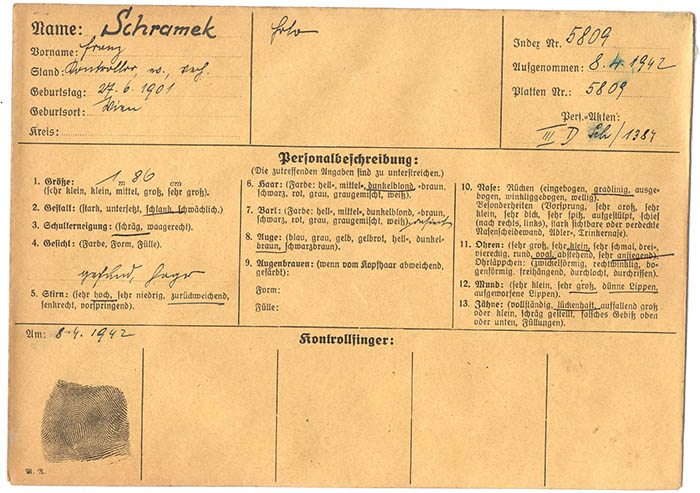 Name: Schramek
Vorname: Franz
Stand: Kontrollor, w., rech.
Geburtstag: 27.6.1901
Geburtsort: Wien
Kreis:
Index Nr. 5809
Aufgenommen: 8.4.1942
Platten Nr.: 5809
Pers.-Akten:
III D /1387
Personalbeschreibung:
(Die zutreffenden Angaben sind zu unterstreichen.)
1. Größe: 1 m 86 cm
(sehr klein, klein, mittel, groß, sehr groß).
2. Gestalt: (stark, untersetzt, schlank, schwächlich).
3. Schulterneigung: (schräg, waagerecht).
4. Gesicht: (Farbe, Form, Fülle).
gesund, hager
5. Stirn: (sehr hoch, sehr niedrig, zurückweichend,
senkrecht, vorspringend).
6. Haar: (Farbe: hell-, mittel-, dunkelblond, -braun,
schwarz, rot, grau, graugemischt, weiß).
7. Bart: (Farbe: hell-, mittel-, dunkelblond, -braun,
schwarz, rot, grau, graugemischt, weiß) rasiert
8. Auge: (blau, grau, gelb, gelbrot, hell-, dunkel-
braun, schwarzbraun).
9. Augenbrauen: (wenn vom Kopfhaar abweichend,
gefärbt):
Form:
Fülle:
10. Nase: Rücken (eingebogen, gradlinig, ausge-
bogen, winkliggebogen, wellig).
Besonderheiten (Vorsprung, sehr groß, sehr
klein, sehr dick, sehr spitz, aufgestülpt, schief
(nach rechts, links), stark sichtbare oder verdeckte
Nasenscheidewand, Adler-, Trinkernase).
11. Ohren: (sehr groß, sehr klein, sehr schmal, drei-
viereckig, rund, oval, abstehend, sehr anliegend).
Ohrläppchen: (zwickelförmig, rechtwinklig, bo-
genförmig, freihängend, durchlocht, durchrissen).
12. Mund: (sehr klein, sehr groß, dünne Lippen,
aufgeworfene Lippen).
13. Zähne: (vollständig, lückenhaft, auffallend groß
oder klein, schräg gestellt, falsches Gebiß oben
oder unten, Füllungen).
Am: 8.4.1942
Kontrollfinger: